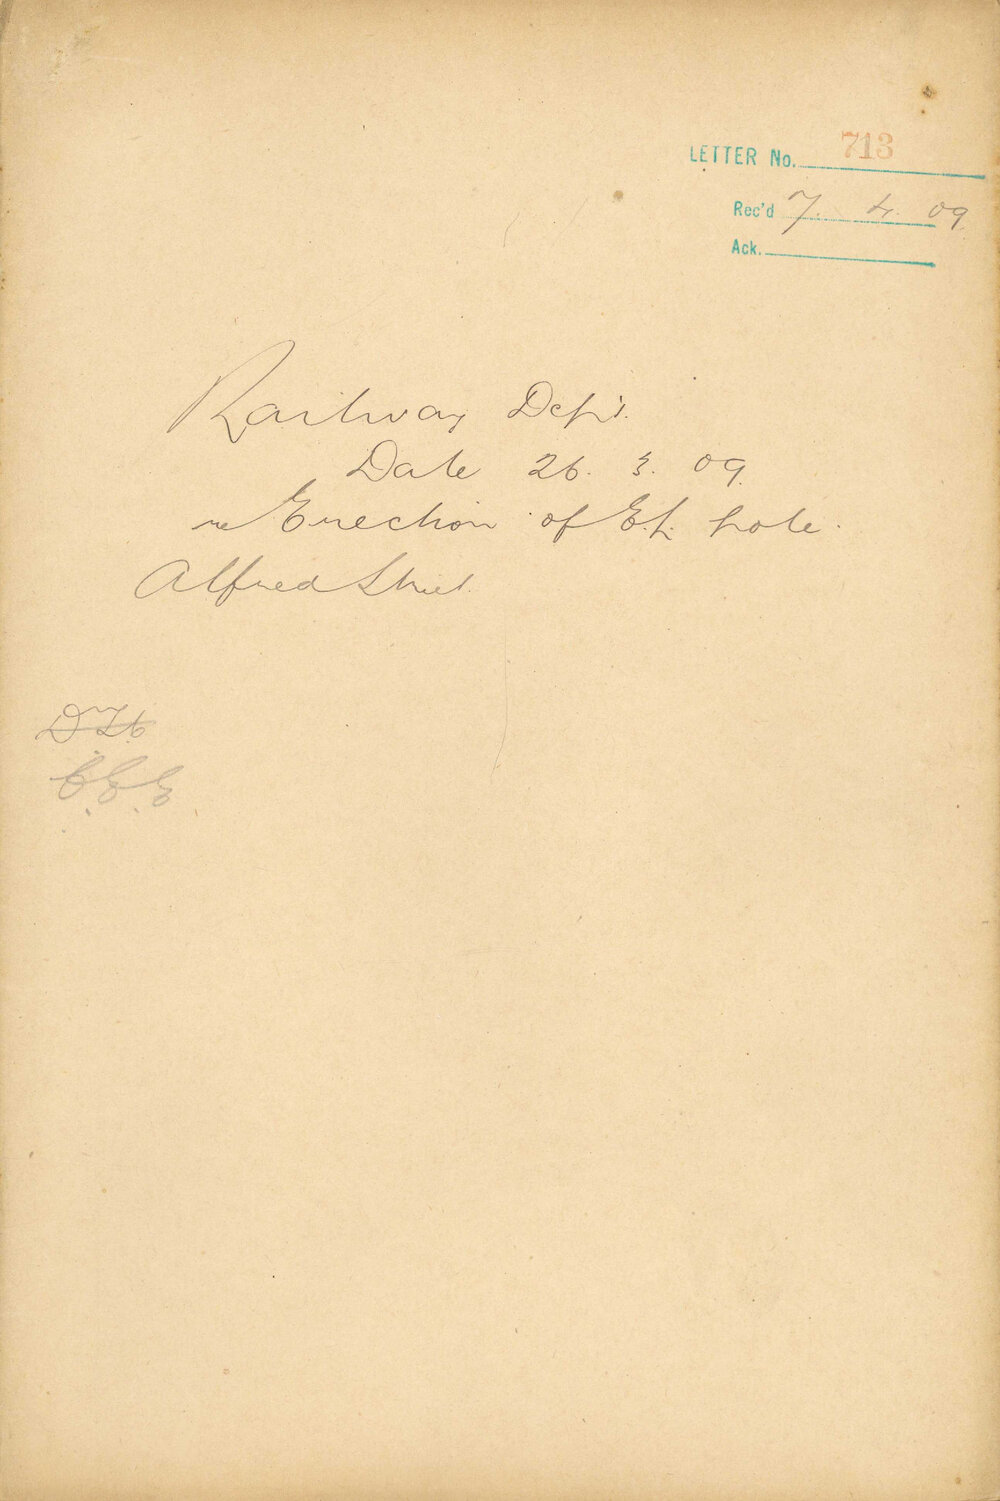 LETTER No. 713
Rec'd 7. 4. 09
Ack.
Railway Dept.
Date 26. 3. 09
re Erection of E.L. pole.
Alfred Street.
C.E.E.